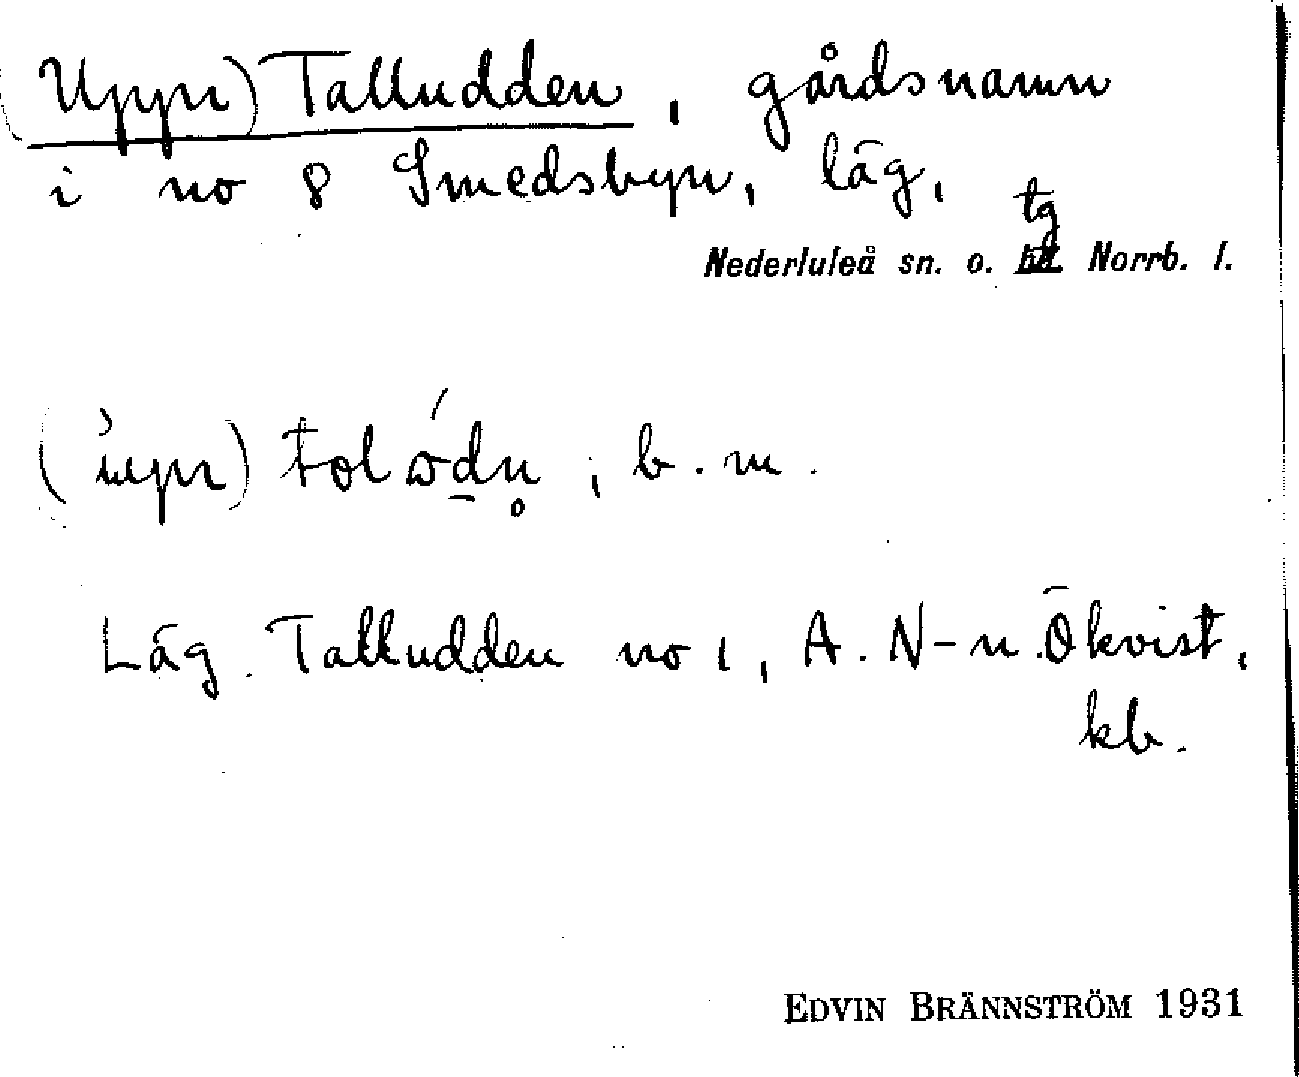 (Uppr) Talludden, gårdsnamn
i no 8 Smedsbyn, läg,
tg
Nederluleå sn. o. Norrb. l.
tolώ̱dn̥; b. m.
Läg. Talludden no 1, A. N-n Ökvist,
kb.
EDVIN BRÄNNSTRÖM 1931